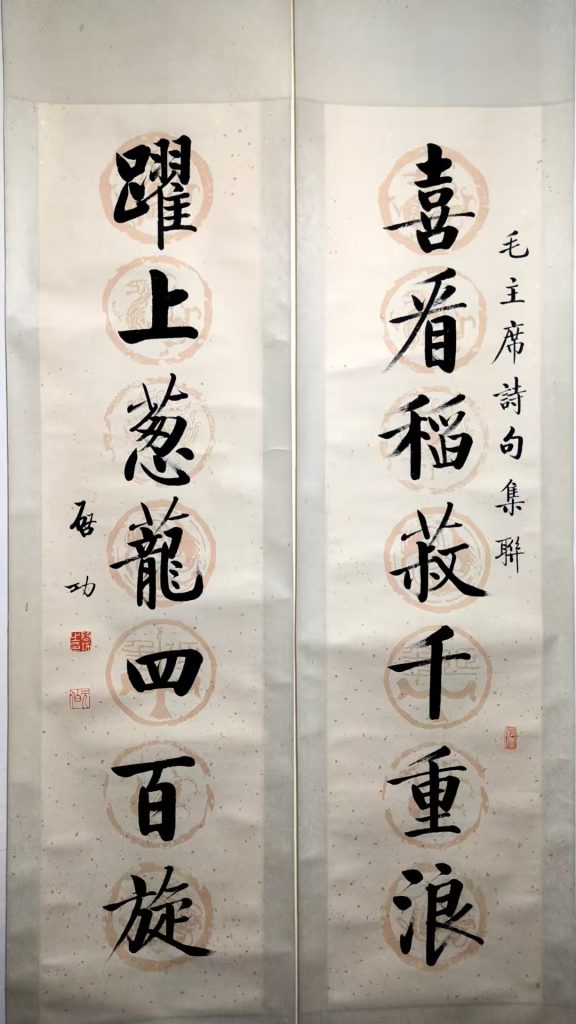 毛主席詩句集聯
喜看稻菽千重浪
躍上葱蘢四百旋
啓功